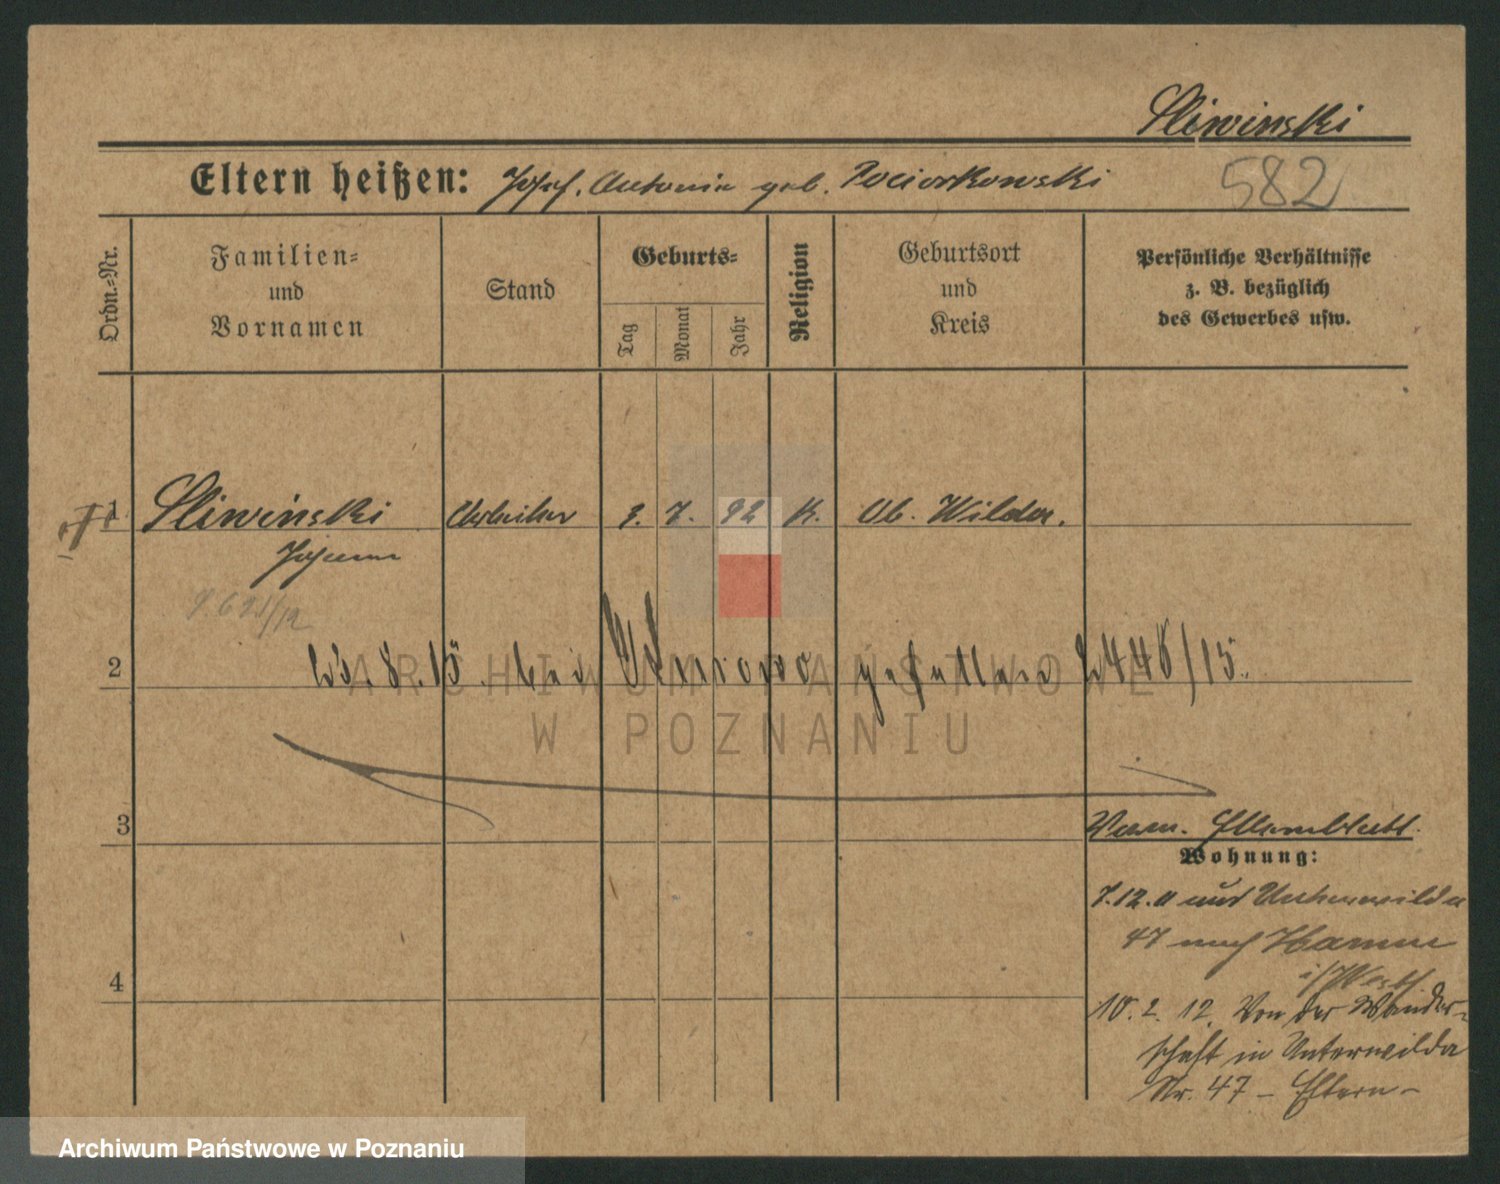 Sliwinski
Eltern heißen: Josef, Antonie geb. Pociorkowski
582
Ordn.-Nr.
Familien-
und
Vornamen
Stand
Geburts-
Tag
Monat
Jahr
Religion
Geburtsort
und
Kreis
Persönliche Verhältnisse
z. B. bezüglich
des Gewerbes usw.
1 Sliwinski Arbeiter 3. 7. 92 K. Ob. Wilda.
Johann
2
.8.15. bei gefallen 446/15.
3
Vom Elternblatt.
Wohnung:
7.12.11 aus Unterwilda
47 nach Hamm
i/Westf
4
10. 2. 12. Von der Wander-
schaft in Unterwilda
Nr. 47 – Eltern –
ARCHIWUM PAŃSTWOWE
W POZNANIU
Archiwum Państwowe w Poznaniu